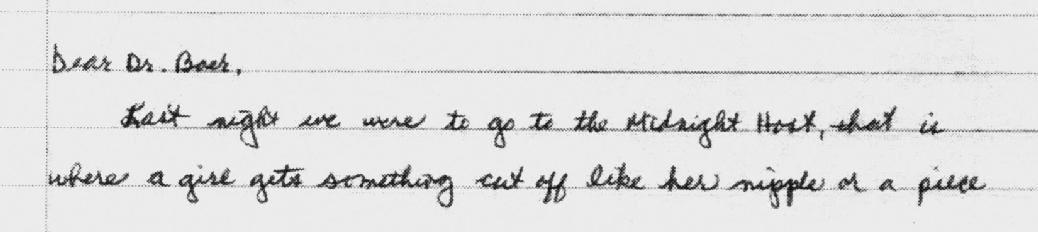 Dear Dr. Baer,
Last night we were to go to the Midnight Host, that is
where a girl gets something cut off like her nipple or a piece